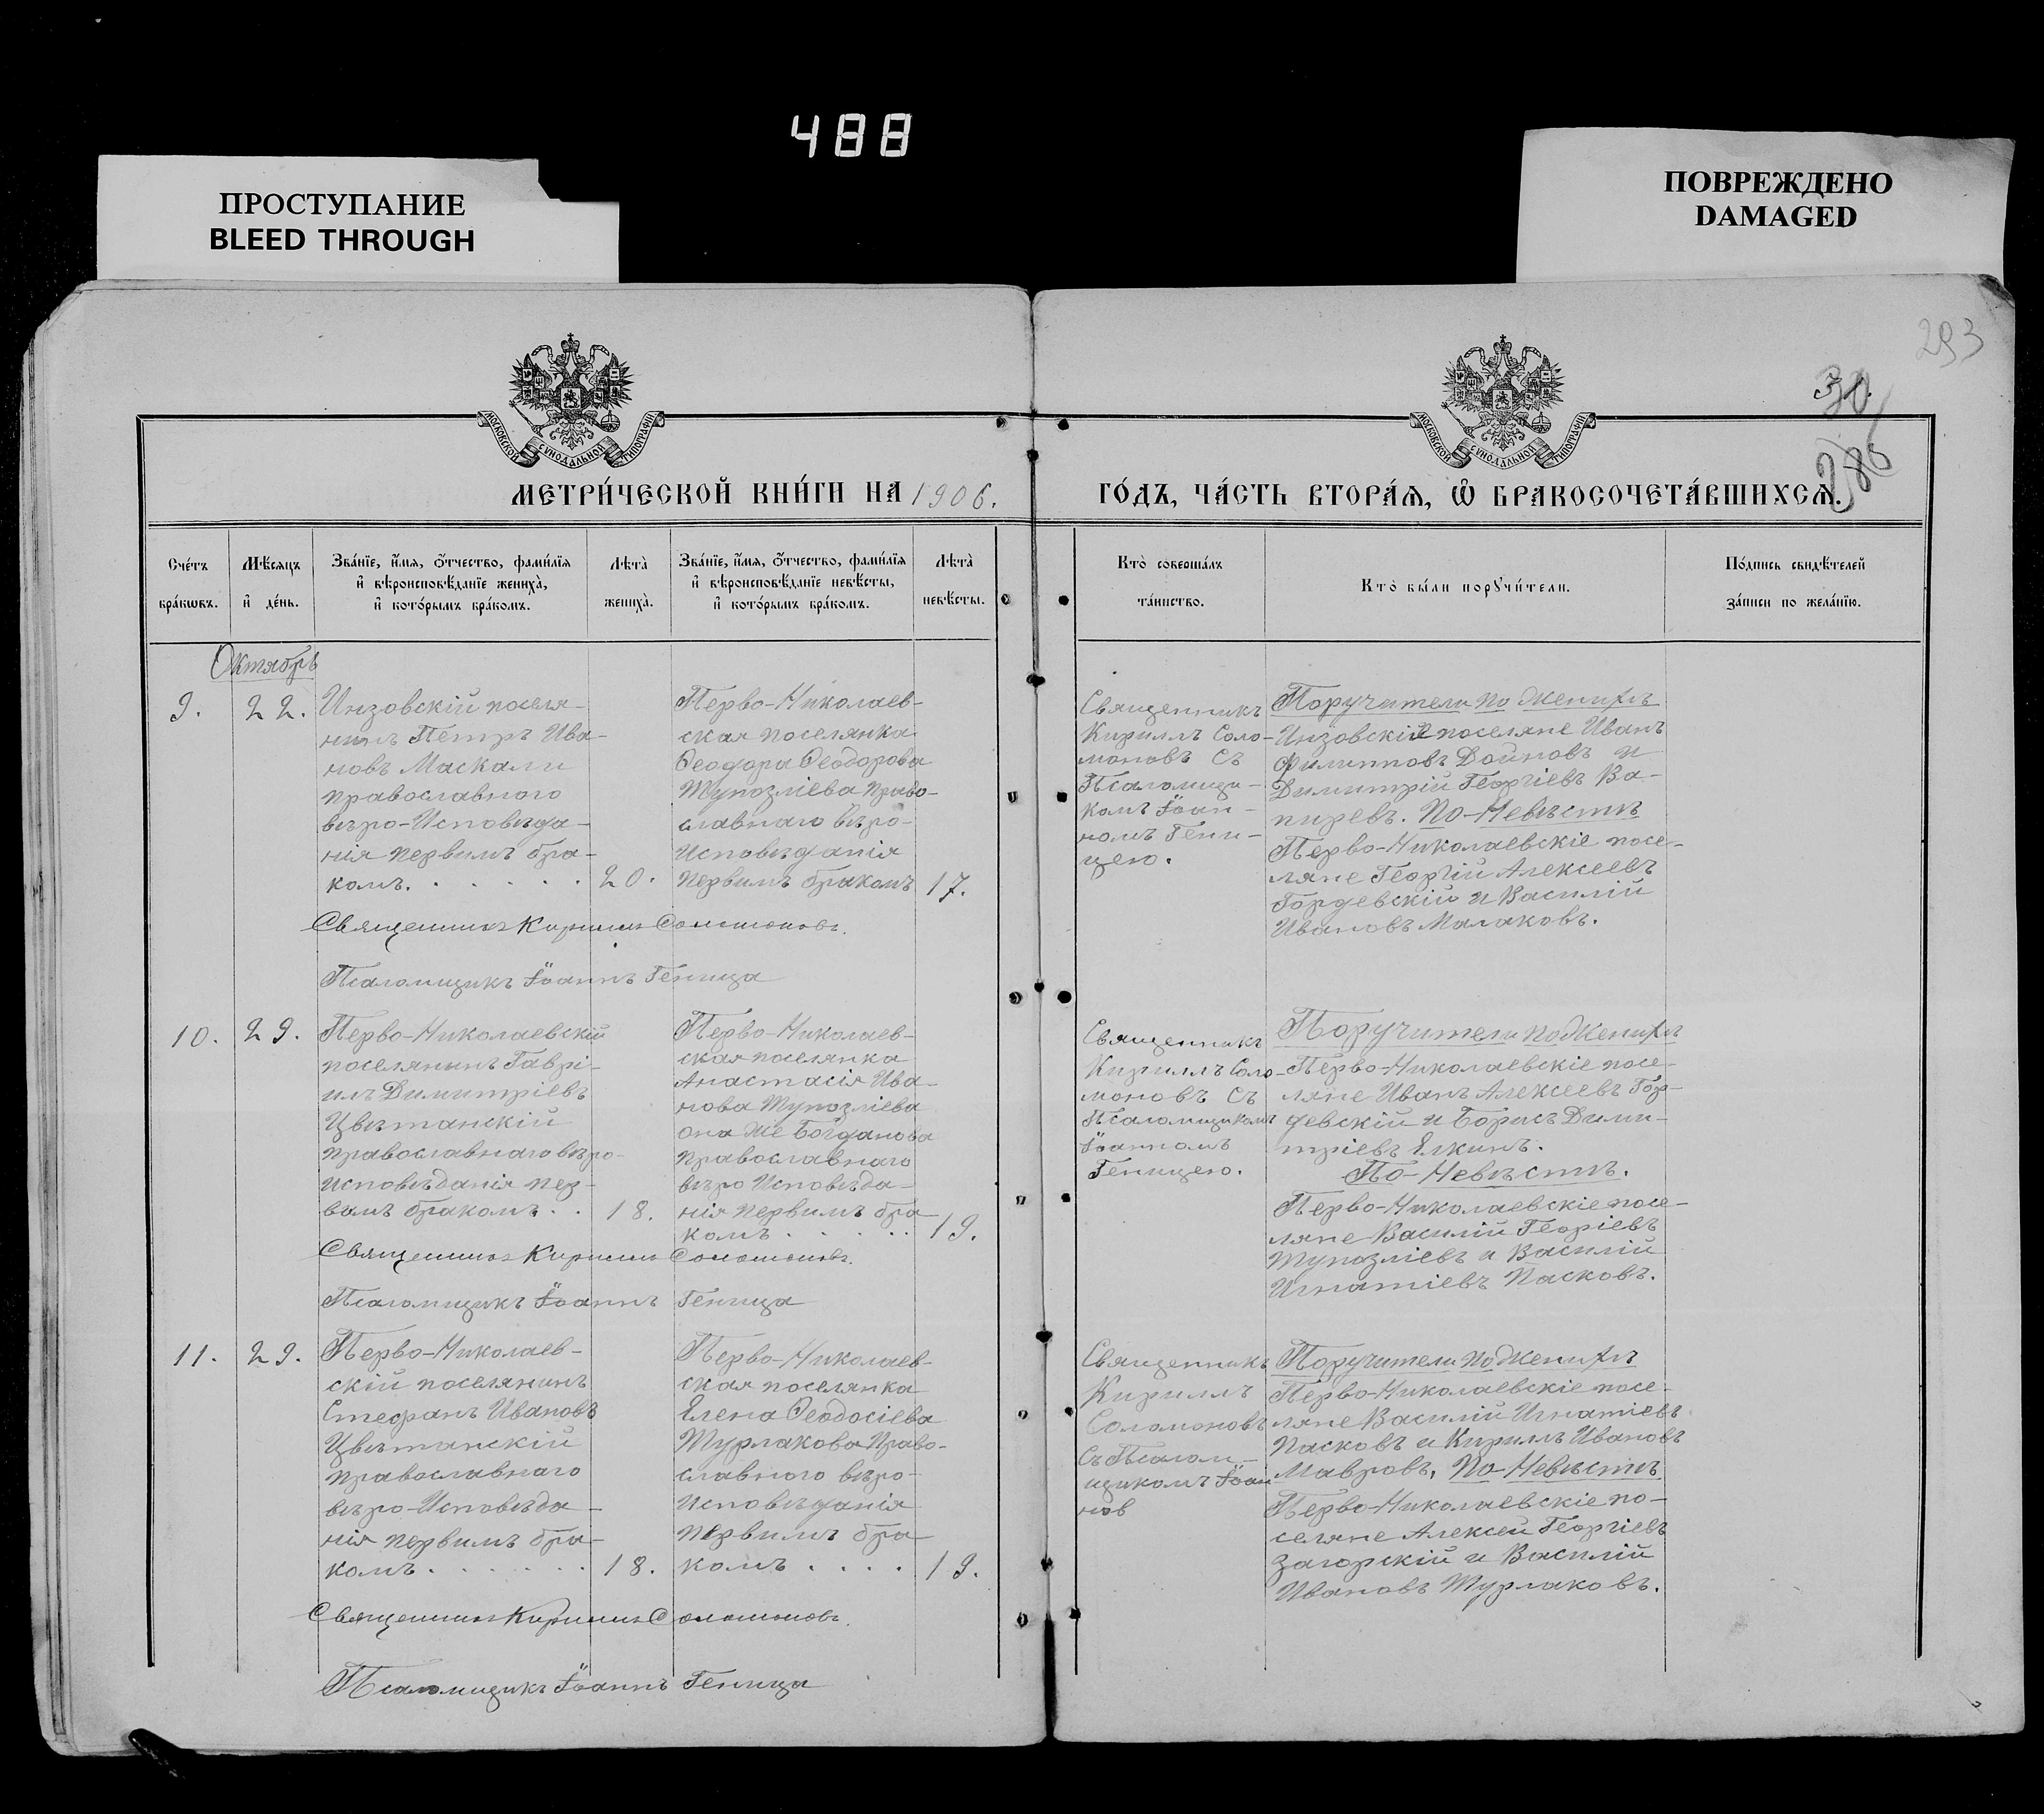 488
ПРОСТУПАНИЕ
BLEED THROUGH
ПОВРЕЖДЕНО
DAMAGED
293
30
286
МОСКОВСКОЙ СѴНОДАЛЬНОЙ ТИПОГРАФІИ
МОСКОВСКОЙ СѴНОДАЛЬНОЙ ТИПОГРАФІИ
МЕТРИ́ЧЕСКОЙ КНИ́ГИ НА 1906.
ГО́ДЪ, ЧА́СТЬ ВТОРА́Ѧ, Ѡ҆ БРАКОСОЧЕТА́ВШИХСѦ.
Сче́тъ
бра́кѡвъ.
Мѣ́сѧцъ
и҆ де́нь.
Зва́нїе, и҆́мѧ, ѻ҆́тчество, фами́лїѧ
и҆ вѣроисповѣ́данїе жениха̀,
и҆ кото́рымъ бра́комъ.
Лѣта̀
жениха̀.
Зва́нїе, и҆́мѧ, ѻ҆́тчество, фами́лїѧ
и҆ вѣроисповѣ́данїе невѣ́сты,
и҆ кото́рымъ бра́комъ.
Лѣта̀
невѣ́сты.
Кто̀ соверша́лъ
та́инство.
Кто̀ бы́ли порꙋчи́тели.
По́дпись свидѣ́телей
за́писи по жела́нїю.
Октябрь
9.
22.
Инзовскій поселя-
нинъ Петръ Ива-
новъ Маскали
православного
вѣро-Исповѣда-
нія первымъ бра-
комъ. . . . . .
20.
Перво-Николаев-
ская поселянка
Ѳеодора Ѳеодорова
Тупозліева право-
славнаго вѣро-
Исповѣданія
первымъ бракомъ
17.
Священникъ
Кириллъ Соло-
моновъ съ
Псаломщи-
комъ Іоан-
номъ Гени-
цею.
Поручители по Женихѣ
Инзовскіе поселяне Иванъ
Филипповъ Дойновъ и
Димитрій Георгіевъ Ва-
пиревъ. По-Невѣстѣ
Перво-Николаевскіе посе-
ляне Георгій Алексеевъ
Гордевскій и Василій
Ивановъ Малаковъ.
Священникъ Кириллъ Соломоновъ.
Псаломщикъ Іоаннъ Геница
10.
29.
Перво-Николаевскій
поселянинъ Гаврі-
илъ Димитріевъ
Цвѣтанскій
православнаго вѣро-
исповѣданія пер-
вымъ бракомъ . .
18.
Перво-Николаев-
ская поселянка
Анастасія Ива-
нова Тупозліева
она же Богданова
православнаго
вѣро Исповѣда-
нія первымъ бра
комъ . . . . .
19.
Священникъ
Кириллъ Соло-
моновъ съ
Псаломщикомъ
Іоанномъ
Геницею.
Поручители по Женихѣ
Перво-Николаевскіе посе-
ляне Иванъ Алексеевъ Гор-
девскій и Борисъ Дими-
тріевъ Елкинъ.
По-Невѣстѣ.
Перво-Николаевскіе посе-
ляне Василій Георіевъ
Тупозліевъ и Василій
Игнатіевъ Пасковъ.
Священникъ Кириллъ Соломоновъ.
Псаломщикъ Іоаннъ Геница
11.
29.
Перво-Николаев-
скій поселянинъ
Стефанъ Ивановъ
Цвѣтанскій
православнаго
вѣро-Исповѣда-
нія первымъ бра-
комъ . . . . . .
18.
Перво-Николаев-
ская поселянка
Елена Ѳеодосіева
Турлакова Право-
славного вѣро-
исповѣданія
первымъ бра
комъ . . . .
19.
Священникъ
Кириллъ
Соломоновъ
съ Псалом-
щикомъ Іоан
нов
Поручители по Женихѣ
Перво-Николаевскіе посе-
ляне Василій Игнатіевъ
Пасковъ и Кириллъ Ивановъ
Мавровъ. По-Невѣстѣ
Перво-Николаевскіе по-
селяне Алексей Георгіевъ
Загорскій и Василій
Ивановъ Турлаковъ.
Священникъ Кириллъ Соломоновъ.
Псаломщикъ Іоаннъ Геница